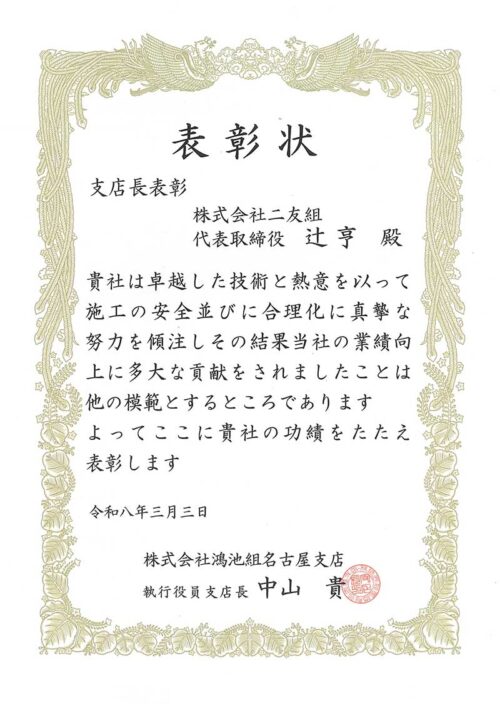 表彰状
支店長表彰
株式会社二友組
代表取締役 辻亨 殿
貴社は卓越した技術と熱意を以って
施工の安全並びに合理化に真摯な
努力を傾注しその結果当社の業績向
上に多大な貢献をされましたことは
他の模範とするところであります
よってここに貴社の功績をたたえ
表彰します
令和八年三月三日
株式会社鴻池組名古屋支店
執行役員支店長 中山 貴